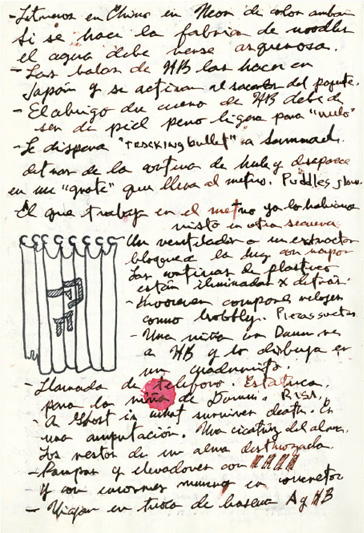 - Letreros en Chino en Neon de color ambar
Si se hace la fabrica de noodles
el agua debe verse asquerosa.
- Las balas de HB las hacen en
Japón y se activan al sacarlas del paquete.
- El abrigo de cuero de HB debe de
ser de piel pero ligera para "vuelo"
- Se dispara "TRACKING bullet" a Sammael
detras de la cortina de hule y desaparece
en un que lleva al metro. Puddles
El que trabaja en el metro ya lo habiamos
visto en otra secuencia
Un ventilador o un extractor
bloquea la luz con vapor
Las cortinas de plastico
están iluminadas x detras.
- Kroenen compone relojes
como hobby. Piezas sueltas
- Una niña con Down ve
a HB y lo dibuja en
un
- Llamada de teléfono. Estatica
para la niña de Downs. RISA.
- A Ghost is what survives death. Es
una amputación. Una cicatriz del alma.
Los restos de un alma destrozada
- Rampas y elevadores con
- Y con enormes muros en concreto
- Viajan en troca de basura A y HB